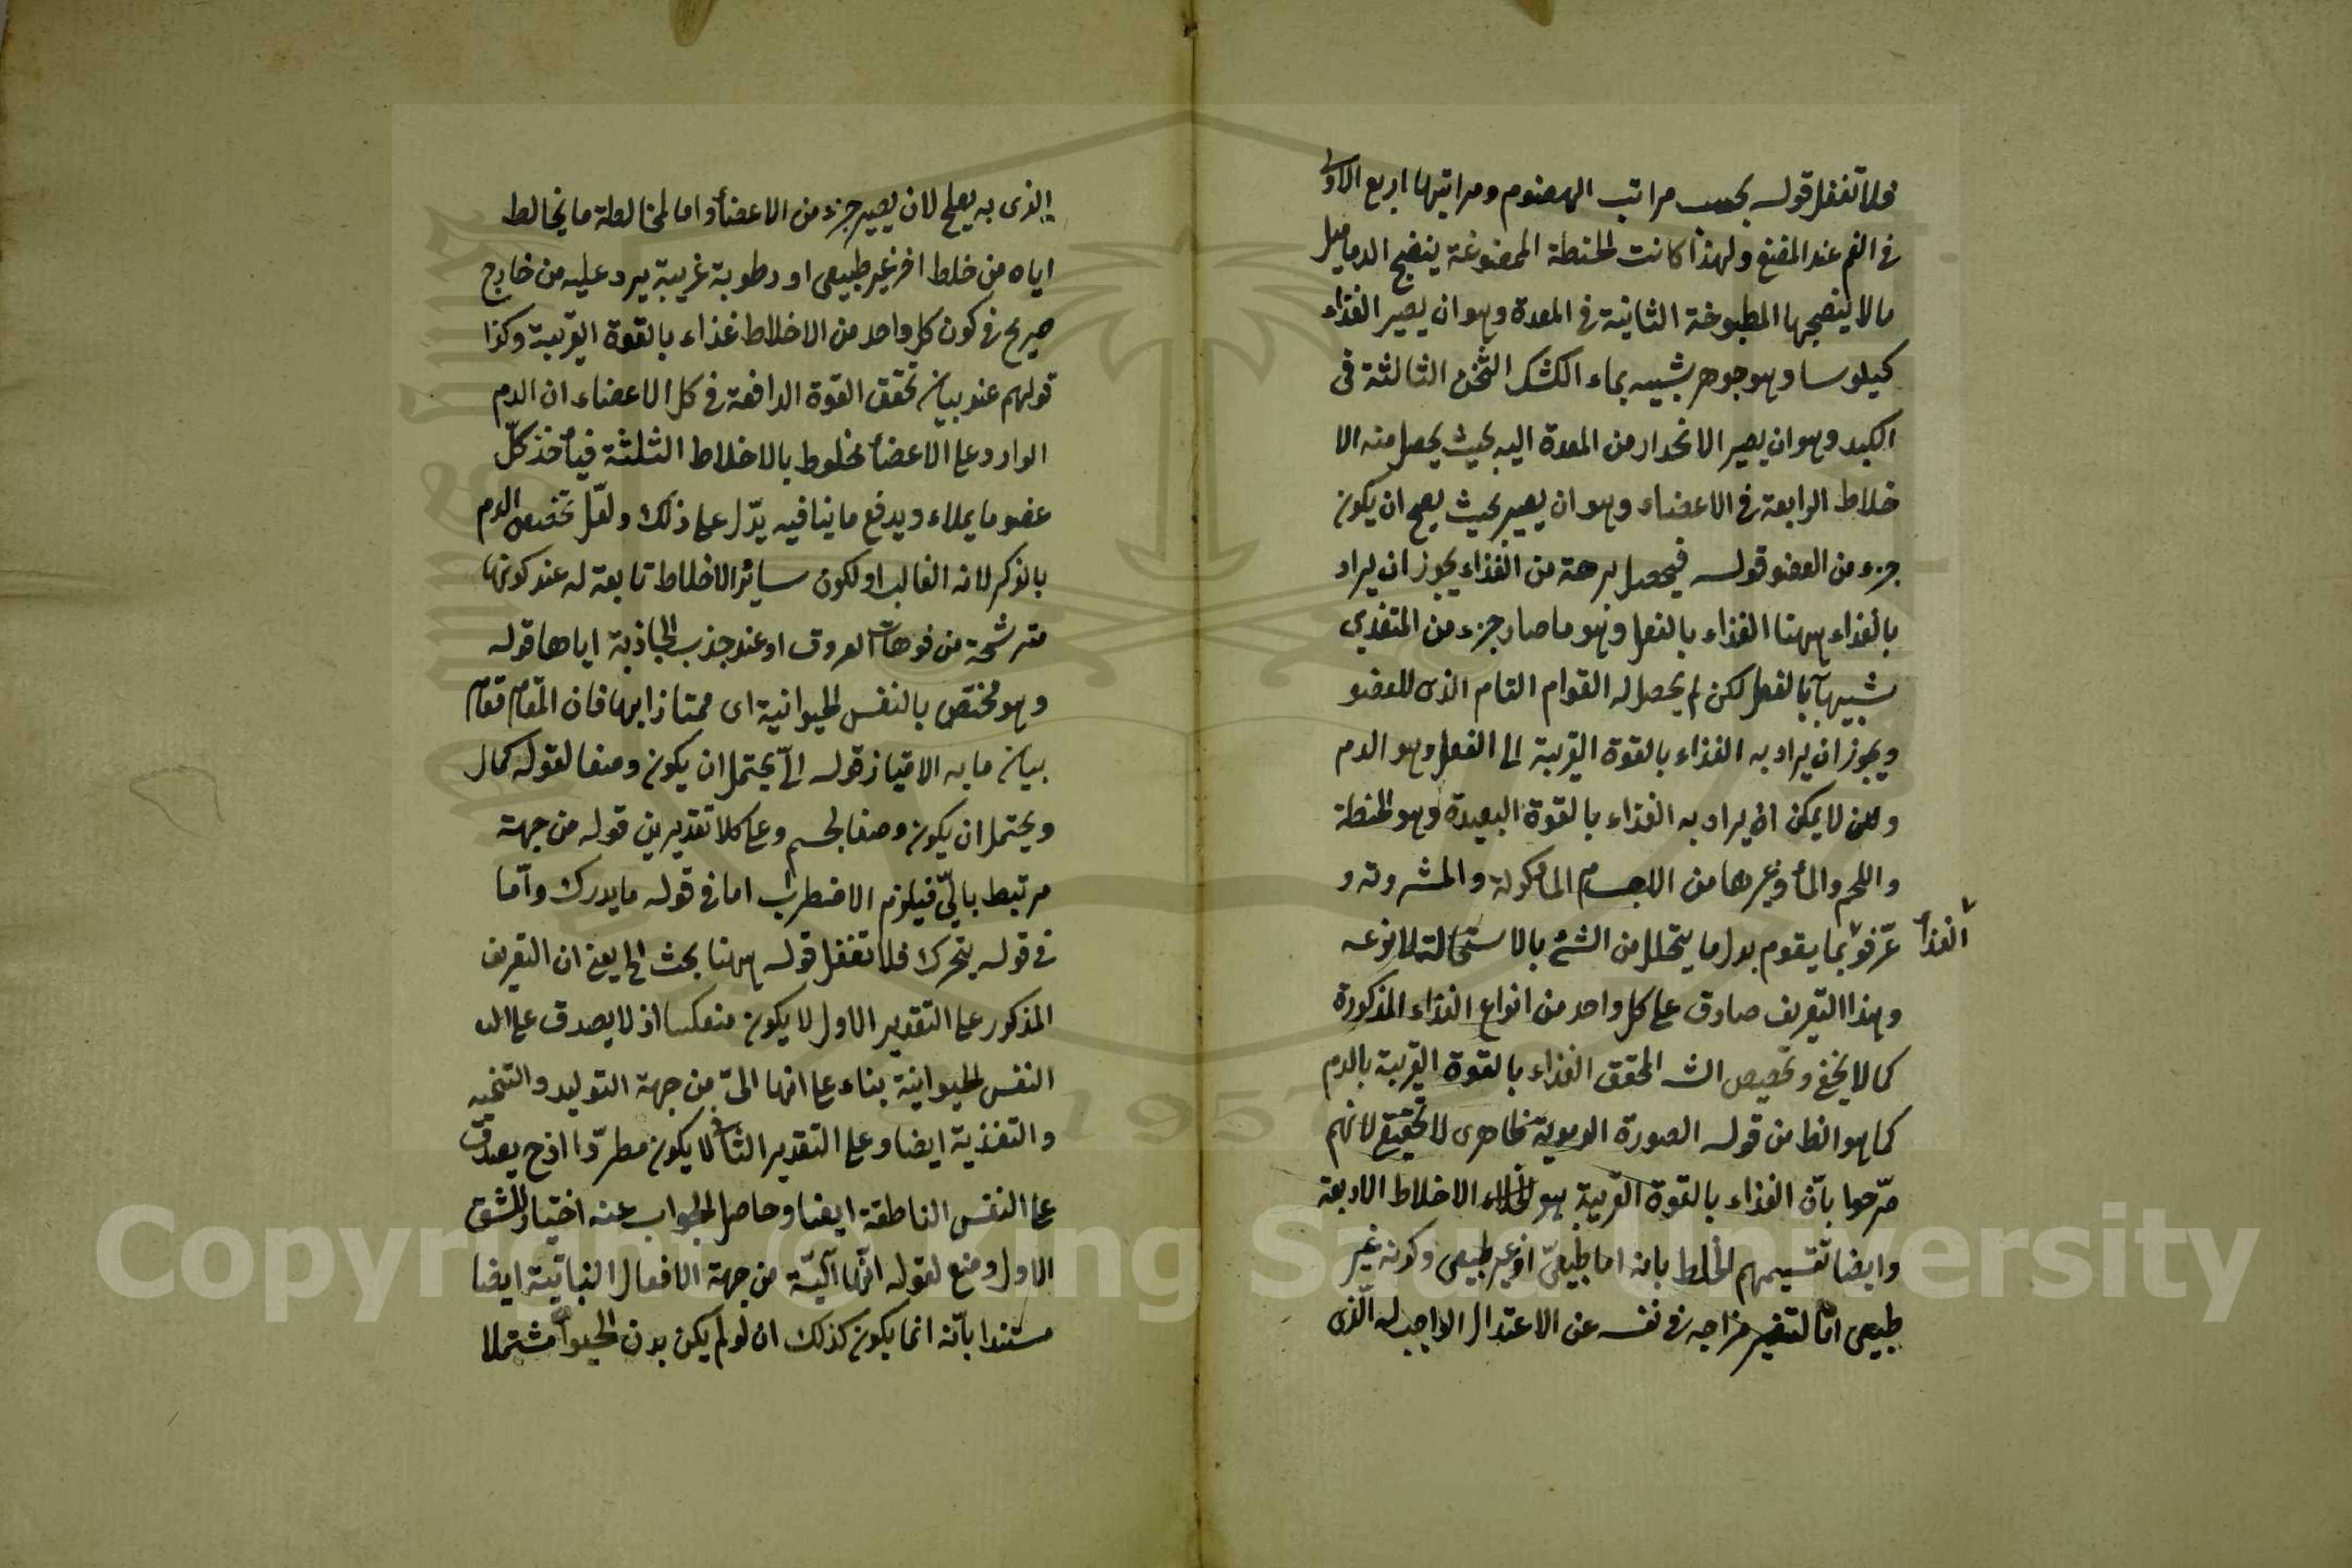 فلا تغفل قوله بحسب مراتب الهضوم ومراتبها اربع الاولى
في الفم عند المضغ ولهذا كانت الحنطة الممضوغة ينضج الدماميل
ما لا ينضجها المطبوخة الثانية في المعدة وهو ان يصير الغذاء
كيلوسا وهو جوهر شبيه بماء الكشك الثخن الثالثة في
الكبد وهو ان يصير الانحدار من المعدة اليه بحيث يحصل منه الا
خلاط الرابعة في الاعضاء وهو ان يصير بحيث يصح ان يكون
جزء من العضو قوله فيحصل برهة من الغذاء يجوز ان يراد
بالغذاء ههنا الغذاء بالفعل وهو ما صار جزء من المتغذي
شبيها بالفعل لكن لم يحصل له القوام التام الذى للعضو
ويجوز ان يراد به الغذاء بالقوة القريبة الى الفعل وهو الدم
ولكن لا يمكن ان يراد به الغذاء بالقوة البعيدة وهو الحنطة
واللحم والماء وغيرها من الاجسام المأكولة والمشروبة و
الغذاء
عرّفوه بما يقوم بدل ما يتحلل من الشئ بالاستحالة لا نوعه
وهذا التعريف صادق على كل واحد من انواع الغذاء المذكورة
كما لا يخفى وتخصيص الشـ المحقق الغذاء بالقوة القريبة بالدم
كما هو الظ من قوله الصورة الدموية ظاهرى لا تحقيقى لانهم
صرّحوا بانّ الغذاء بالقوة القريبة هو الاخلاط الاربعة
وايضا تقسيمهم الخلط بانه اما طبيعىّ او غير طبيعى وكونه غير
طبيعى امّا لتغير مزاجه في نفسه عن الاعتدال الواجب له الّذى
الذى به يصلح لان يصير جزء من الاعضاء واما لمخالطة ما يخالط
اياه من خلط اخر غير طبيعى او رطوبة غريبة يرد عليه من خارج
صريح في كون كل واحد من الاخلاط غذاء بالقوة القريبة وكذا
قولهم عند بيان تحقق القوة الدافعة في كل الاعضاء ان الدم
الوارد على الاعضاء مخلوط بالاخلاط الثلثة فيأخذ كلّ
عضو ما يملاء ويدفع ما ينافيه يدّل على ذلك ولعّل تخصص الدم
بالذكر لانه الغالب او لكون سائر الاخلاط تابعة له عند كونها
مترشحة من فوهات العروق او عند جذب الجاذبة اياها قوله
وهو مختص بالنفس الحيوانية اى ممتاز ابها فان المقام مقام
بيان ما به الامتياز قوله آلىّ يحتمل ان يكون وصفا لقوله كمال
ويحتمل ان يكون وصفا لجسم وعلى كلا تقديرين قوله من جهة
مرتبط بآليّ فيلزم الاضطراب اما في قوله ما يدرك وامّا
في قوله يتحرك فلا تغفل قوله ههنا بحث الخ يعنى ان التعريف
المذكور على التقدير الاول لا يكون منعكسا اذ لا يصدق على الى
النفس الحيوانية بناء على انها الىّ من جهة التوليد والتنميه
والتغذية ايضا وعلى التقدير الثانى لا يكون مطردّا اذح يصدق
على النفس الناطقة ايضا وحاصل الجواب عنه اختيار الشق
الاول ومنع لقوله انّها آليّة من جهة الافعال النباتّية ايضا
مستندا بانّه انما يكون كذلك ان لو لم يكن بدن الحيوان مشتملا
Copyright © King Saud University
1957